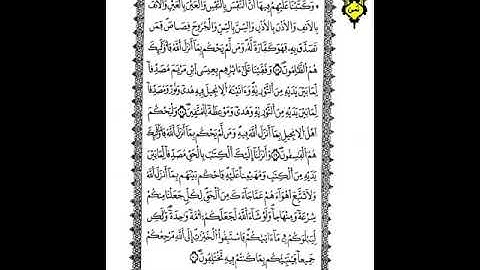 وَكَتَبْنَا عَلَيْهِمْ فِيهَا أَنَّ النَّفْسَ بِالنَّفْسِ وَالْعَيْنَ بِالْعَيْنِ وَالْأَنفَ
بِالْأَنفِ وَالْأُذُنَ بِالْأُذُنِ وَالسِّنَّ بِالسِّنِّ وَالْجُرُوحَ قِصَاصٌ فَمَن
تَصَدَّقَ بِهِ فَهُوَ كَفَّارَةٌ لَّهُ وَمَن لَّمْ يَحْكُم بِمَا أَنزَلَ اللَّهُ فَأُولَٰئِكَ
هُمُ الظَّٰلِمُونَ ۝ وَقَفَّيْنَا عَلَىٰ ءَاثَٰرِهِم بِعِيسَى ابْنِ مَرْيَمَ مُصَدِّقًا
لِّمَا بَيْنَ يَدَيْهِ مِنَ التَّوْرَىٰةِ وَءَاتَيْنَٰهُ الْإِنجِيلَ فِيهِ هُدًى وَنُورٌ وَمُصَدِّقًا
لِّمَا بَيْنَ يَدَيْهِ مِنَ التَّوْرَىٰةِ وَهُدًى وَمَوْعِظَةً لِّلْمُتَّقِينَ ۝ وَلْيَحْكُمْ
أَهْلُ الْإِنجِيلِ بِمَا أَنزَلَ اللَّهُ فِيهِ وَمَن لَّمْ يَحْكُم بِمَا أَنزَلَ اللَّهُ فَأُولَٰئِكَ
هُمُ الْفَٰسِقُونَ ۝ وَأَنزَلْنَا إِلَيْكَ الْكِتَٰبَ بِالْحَقِّ مُصَدِّقًا لِّمَا بَيْنَ
يَدَيْهِ مِنَ الْكِتَٰبِ وَمُهَيْمِنًا عَلَيْهِ فَاحْكُم بَيْنَهُم بِمَا أَنزَلَ اللَّهُ
وَلَا تَتَّبِعْ أَهْوَاءَهُمْ عَمَّا جَاءَكَ مِنَ الْحَقِّ لِكُلٍّ جَعَلْنَا مِنكُمْ
شِرْعَةً وَمِنْهَاجًا وَلَوْ شَاءَ اللَّهُ لَجَعَلَكُمْ أُمَّةً وَٰحِدَةً وَلَٰكِن
لِّيَبْلُوَكُمْ فِي مَا ءَاتَىٰكُمْ فَاسْتَبِقُوا الْخَيْرَٰتِ إِلَى اللَّهِ مَرْجِعُكُمْ
جَمِيعًا فَيُنَبِّئُكُم بِمَا كُنتُمْ فِيهِ تَخْتَلِفُونَ ۝